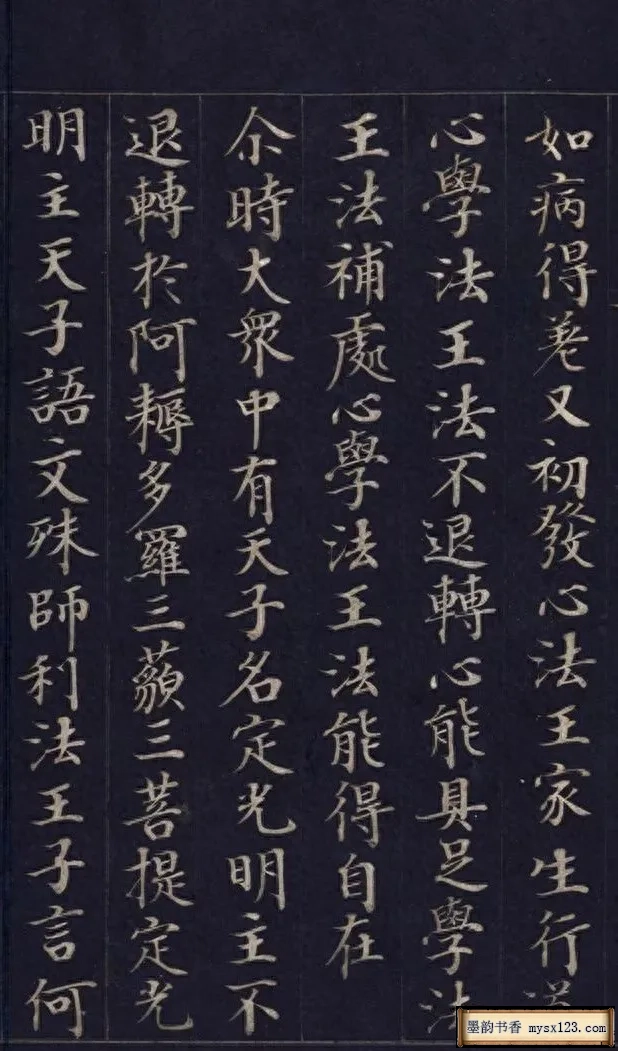 如病得差又初發心法王家生行道
心學法王法不退轉心能具足學法
王法補處心學法王法能得自在
尒時大衆中有天子名定光明主不
退轉於阿耨多羅三藐三菩提定光
明主天子語文殊師利法王子言何
墨韵书香 mysx123.com